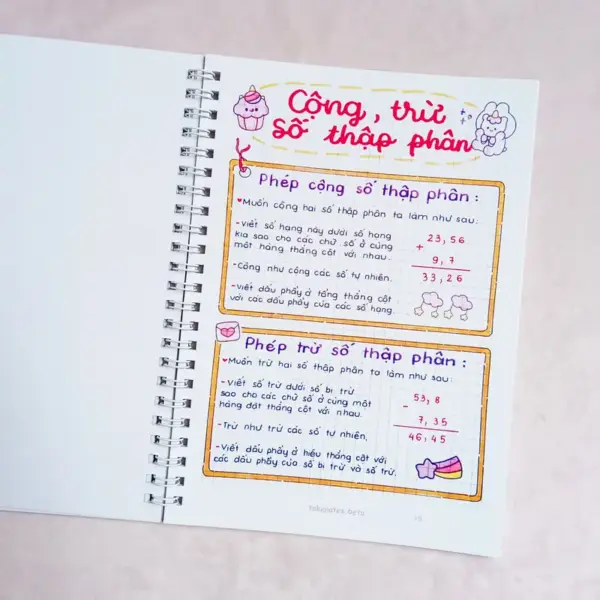 Cộng, trừ
số thập phân
Phép cộng số thập phân :
Muốn cộng hai số thập phân ta làm như sau:
-Viết số hạng này dưới số hạng
kia sao cho các chữ số ở cùng
một hàng thẳng cột với nhau.
-Cộng như cộng các số tự nhiên.
-Viết dấu phẩy ở tổng thẳng cột
với các dấu phẩy của các số hạng.
23,56
+
9,7
33,26
Phép trừ số thập phân :
Muốn trừ hai số thập phân ta làm như sau:
-Viết số trừ dưới số bị trừ
sao cho các chữ số ở cùng một
hàng đặt thẳng cột với nhau.
-Trừ như trừ các số tự nhiên.
-Viết dấu phẩy ở hiệu thẳng cột với
các dấu phẩy của số bị trừ và số trừ.
53,8
-
7,35
46,45